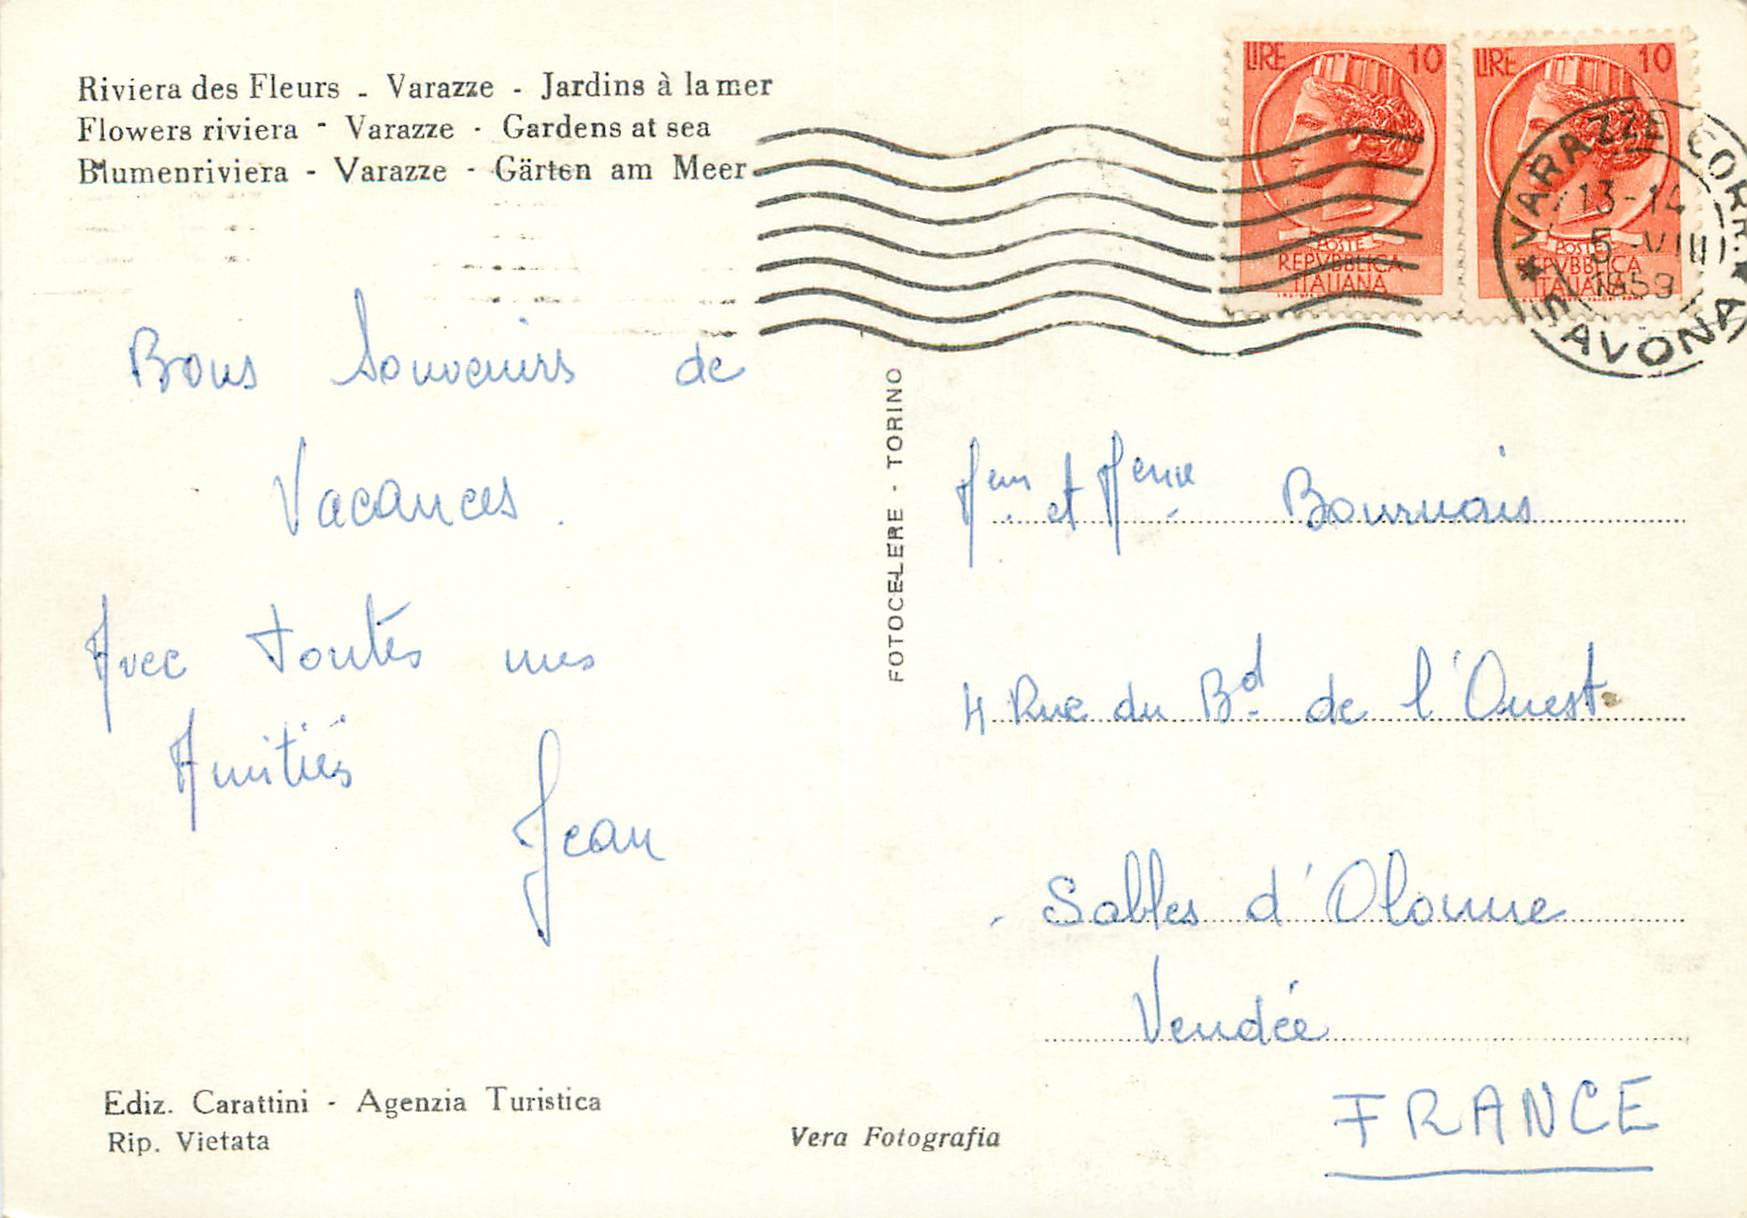 Riviera des Fleurs - Varazze - Jardins à la mer
Flowers riviera - Varazze - Gardens at sea
Blumenriviera - Varazze - Gärten am Meer
LIRE 10
POSTE
REPVBBLICA
ITALIANA
LIRE 10
POSTE
REPVBBLICA
ITALIANA
VARAZZE CORR.
13-14
5-VIII
1959
SAVONA
Bons Souvenirs de
Vacances.
Avec toutes mes
Amitiés
Jean
FOTOCELERE - TORINO
et Bournais
4 Rue du Bd de l'Ouest
Sables d'Olonne
Vendée
FRANCE
Ediz. Carattini - Agenzia Turistica
Rip. Vietata
Vera Fotografia